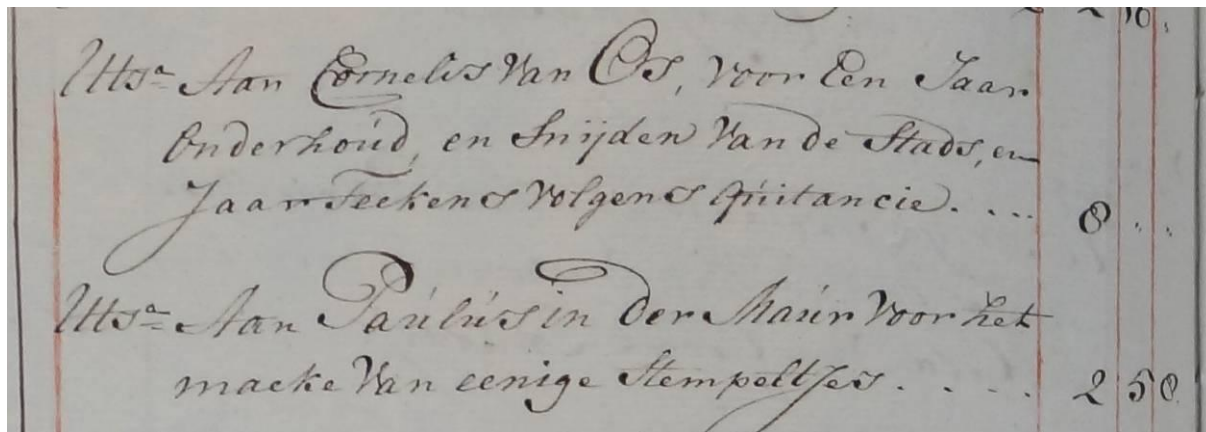 Utsa Aan Cornelis Van Os, voor Een Jaar
Onderhoud, en Snijden Van de Stads, en
Jaar Teekens volgens Quitancie. . . . 8 . .
Utsa Aan Paulus in der Maur voor het
maeke Van eenige Stempeltjes . . . . 2 5 8